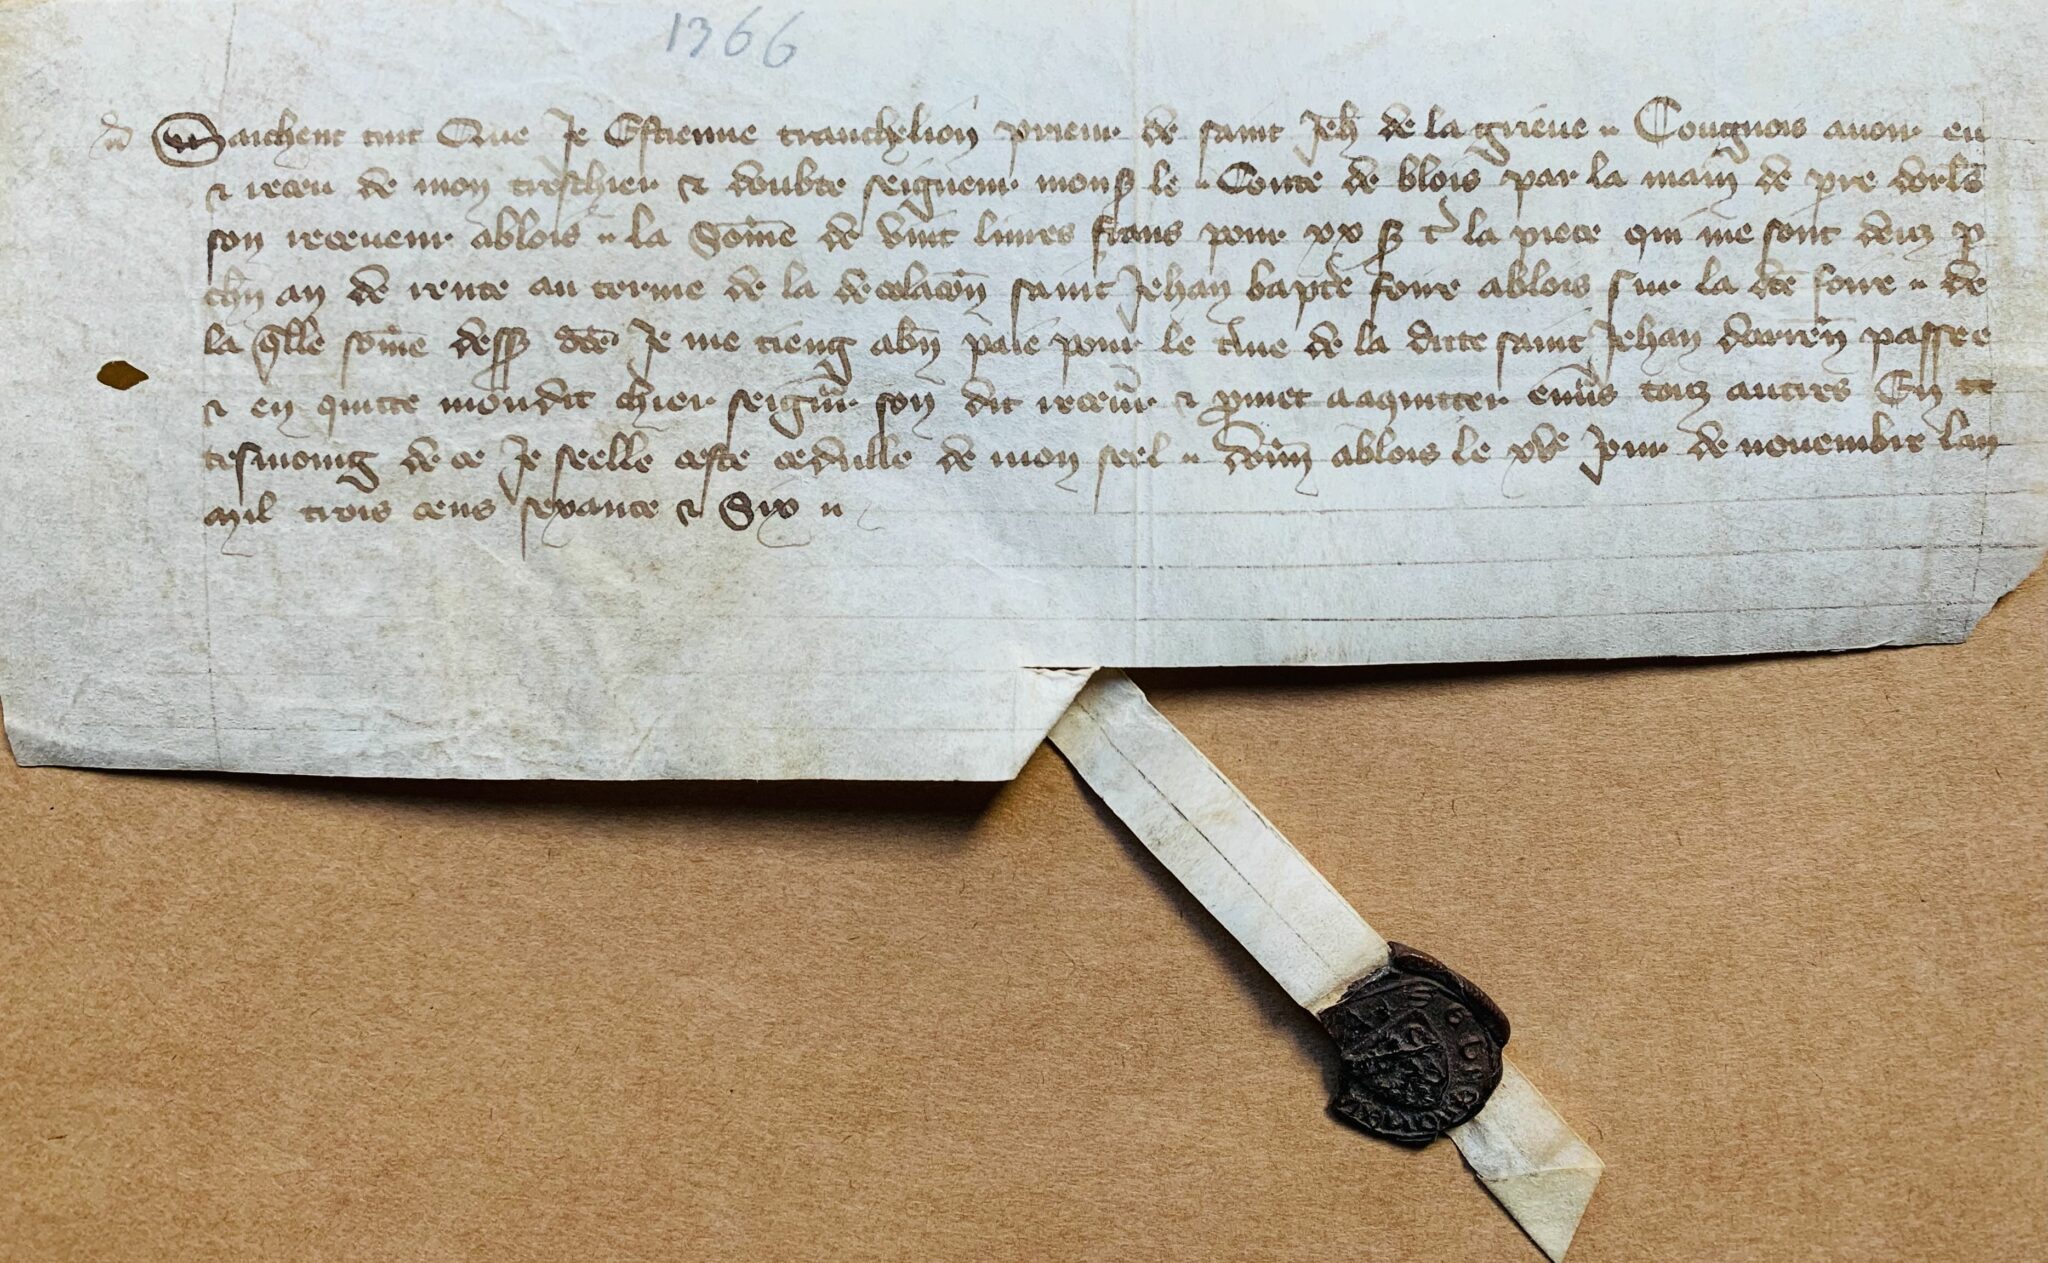 1366
Saichent tuit Que Je Estienne tranchelion prieur de saint Jeh de la grieve Congnois avoir eu
& receu de mon treschier & doubte seigneur mons le Conte de blois par la main de pre dorls
son receveur ablois la Somme de vint livres frans pour xx s t la piece qui me sont deuz p
chn an de rente au terme de la decolacon saint Jehan bapte foire ablois sur la dce foire de
la qlle some dess dce Je me tieng abn paie pour le tme de la dicte saint Jehan darren passee
& en quitte mondit chier seignr son dit recevr & pmet aaquitter envs touz autres En
tesmoing de ce Je seelle ceste cedulle de mon seel donn ablois le xve Jour de novembre lan
mil trois cens sexante & Six